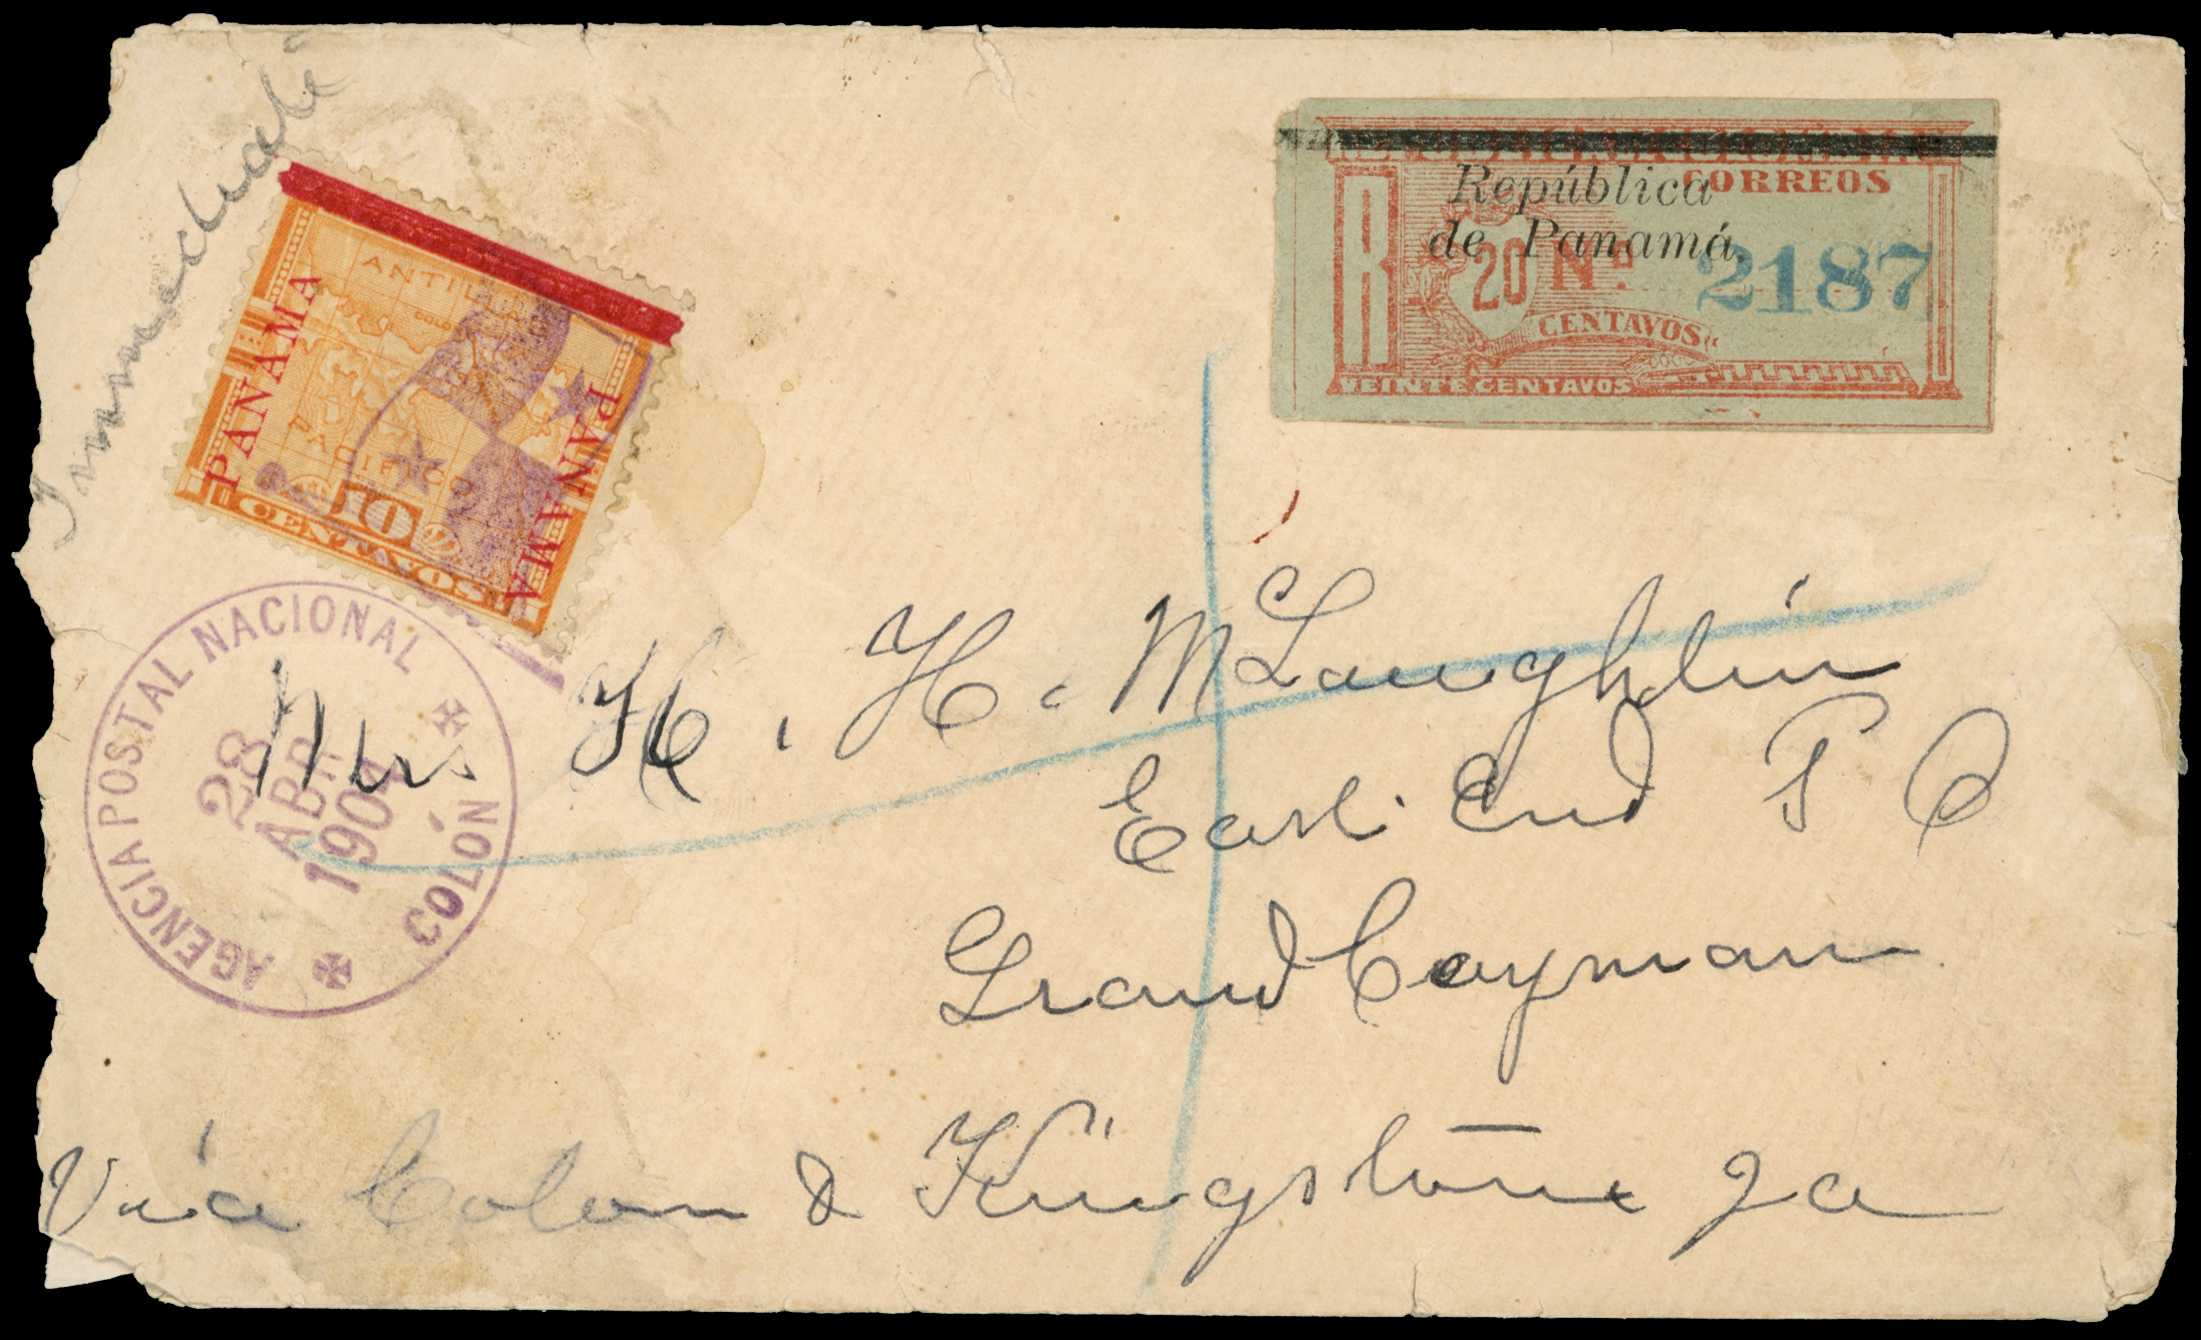 Immediate
PANAMA
ANTILLAS
COLO
PACIFICO
10
CENTAVOS
PANAMA
CORREOS
República
de Panamá
R
20
No.
2187
CENTAVOS
VEINTE CENTAVOS
AGENCIA POSTAL NACIONAL
COLÓN
28
ABR
1904
Mr. H. H. McLaughlin
East End P O
Grand Cayman
Via Colon & Kingstone Ja